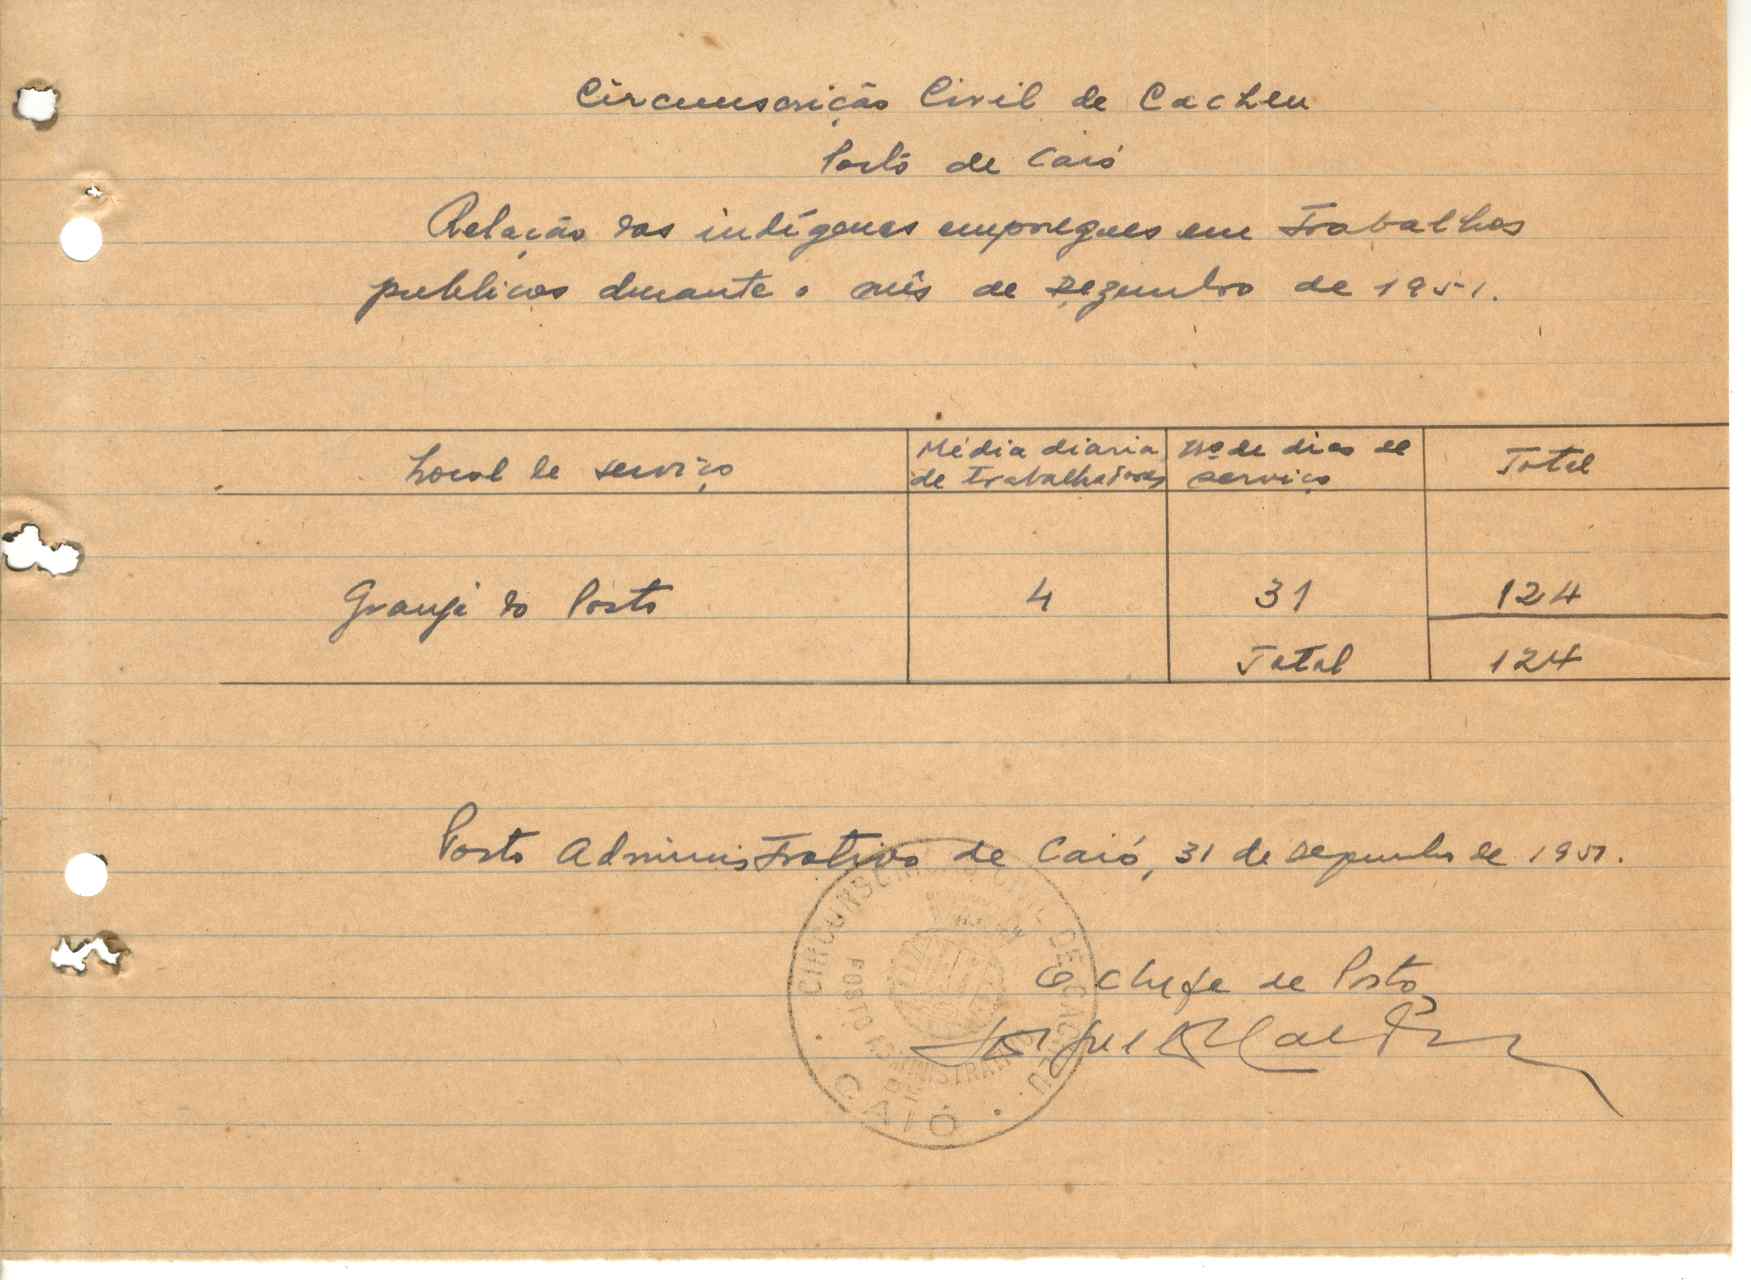 Circunscrição Civil de Cacheu
Posto de Caió
Relação dos indígenas empregues em Trabalhos
publicos durante o mês de Dezembro de 1951.
Local de serviço Média diaria de trabalhadores Nº de dias de serviço Total
Granja do Posto 4 31 124
Total 124
Posto Administrativo de Caió, 31 de Dezembro de 1951.
O Chefe de Posto
CIRCUNSCRIÇÃO CIVIL DE CACHEU
POSTO ADMINISTRATIVO
DE
CAIÓ